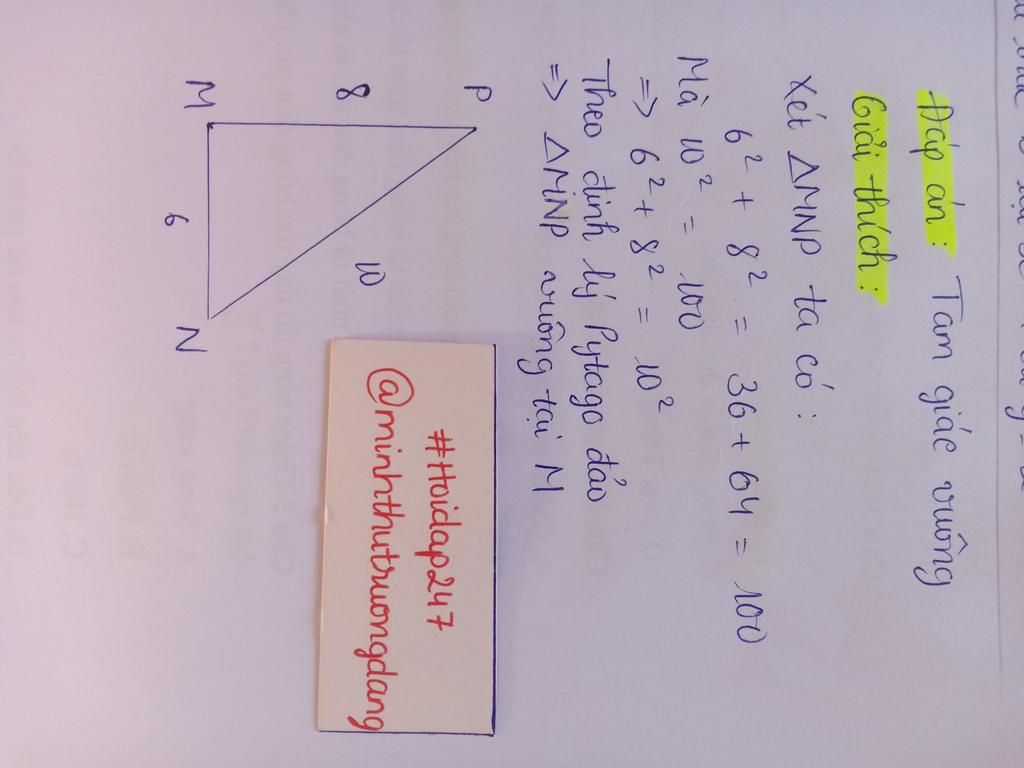 Đáp án: Tam giác vuông
Giải thích:
Xét ΔMNP ta có:
6² + 8² = 36 + 64 = 100
Mà 10² = 100
=> 6² + 8² = 10²
Theo định lý Pytago đảo
=> ΔMNP vuông tại M
P
8
10
M
6
N
#Hoidap247
@minhthutriuongdang